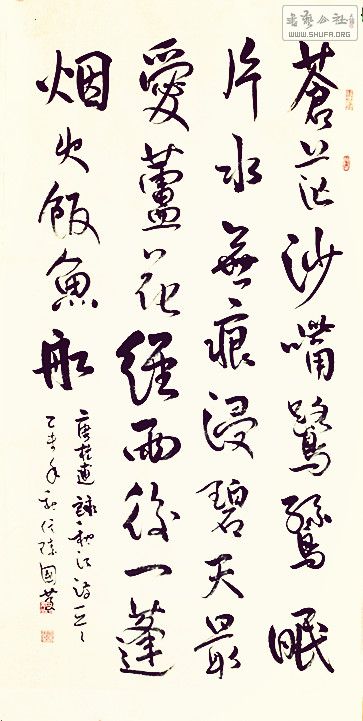 書藝公社
WWW.SHUFA.ORG
蒼茫沙嘴鷺鷥眠
片水無痕浸碧天最
愛蘆花經雨後一蓬
烟火飯魚船
唐林逋詠秋江詩
乙未年國